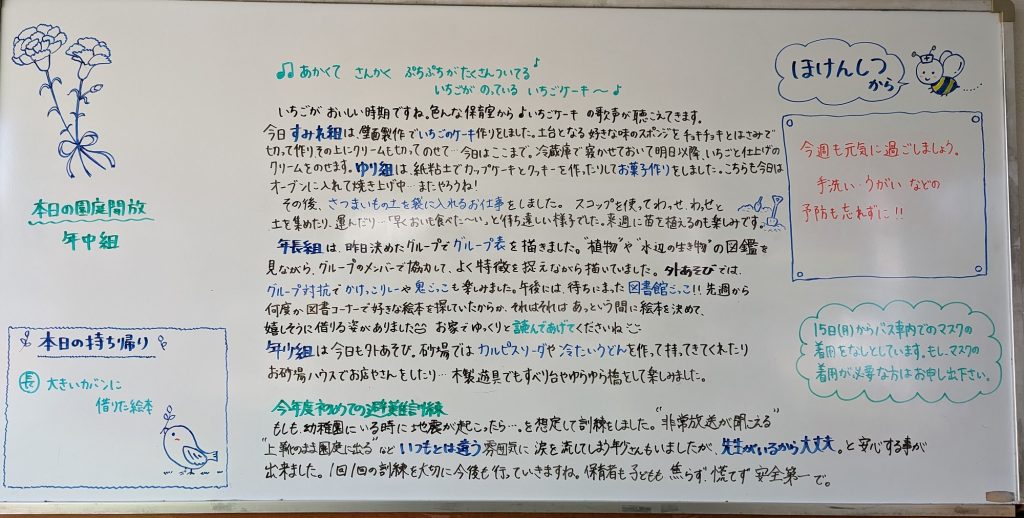 本日の園庭開放
年中組
本日の持ち帰り
長 大きいカバンに
借りた絵本
♫あかくて さんかく ぷちぷちがたくさんついてる♪
いちごが のっている いちごケーキ〜♪
いちごが おいしい時期ですね。色んな保育室から♪いちごケーキ の歌声が聴こえてきます。
今日 すみれ組は、壁面製作でいちごのケーキ作りをしました。土台となる 好きな味のスポンジを チョキチョキとはさみで
切って作り、その上にクリームも切って のせて…今日はここまで。冷蔵庫で寝かせておいて明日以降、いちごと仕上げの
クリームをのせます。ゆり組は、紙粘土でカップケーキとクッキーを作ったりしてお菓子作りをしました。こちらも今日は
オーブンに入れて焼き上げ中…またやろうね!
その後、さつまいもの土を袋に入れるお仕事をしました。 スコップを使って わっせ、わっせと
土を集めたり、運んだり…「早くおいも食べた〜い」と待ち遠しい様子でした。来週に苗を植えるのも楽しみです。
年長組は、昨日決めたグループで グループ表を描きました。"植物"や"水辺の生き物"の図鑑を
見ながら、グループのメンバーで協力して、よく特徴を捉えながら描いていました。外あそびでは、
グループ対抗でかけっこリレーや鬼ごっこも楽しみました。午後には、待ちにまった図書館ごっこ!! 先週から
何度か図書コーナーで好きな絵本を探していたからか、それはそれは あっという間に絵本を決めて、
嬉しそうに借りる姿がありました お家でゆっくりと読んであげてくださいね
年少組は今日も外あそび。砂場では カルピスソーダや冷たいうどんを作って持ってきてくれたり
お砂場ハウスでお店やさんをしたり…木製遊具でもすべり台やゆらゆら橋をして楽しみました。
今年度初めての避難訓練
もしも幼稚園にいる時に地震が起こったら…。を想定して訓練をしました。"非常放送が聞こえる"
"上靴のまま園庭に出る"など いつもとは違う 雰囲気に 涙を流してしまう年少さんもいましたが、先生がいるから大丈夫。と安心する事が
出来ました。1回1回の訓練を大切に今後も行っていきますね。保育者も子どもも 焦らず、慌てず 安全第一で。
ほけんしつ
から
今週も元気に過ごしましょう。
手洗い・うがい などの
予防も忘れずに!!
15日(月)からバス車内でのマスクの
着用をなしとしています。もし、マスクの
着用が必要な方はお申し出下さい。